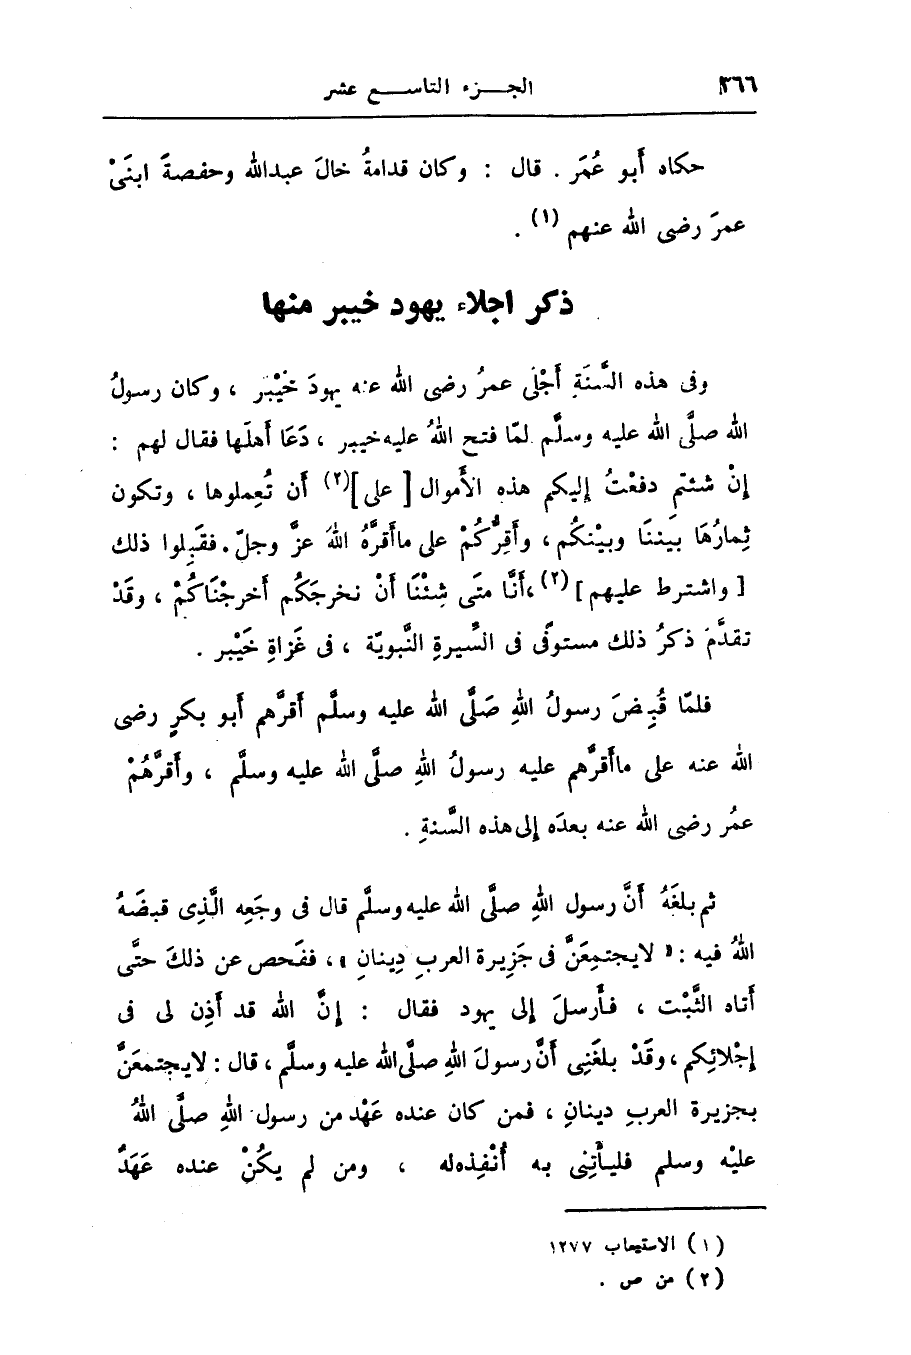 ٣٦٦ الجزء التاسع عشر
حكاه أبو عُمَر . قال : وكان قدامةُ خالَ عبدالله وحفصةَ ابنَىْ
عمرَ رضى الله عنهم (١) .
ذكر اجلاء يهود خيبر منها
وفى هذه السَّنَةِ أَجْلَى عمرُ رضى الله عنه يهودَ خَيْبر ، وكان رسولُ
الله صلَّى الله عليه وسلَّم لمّا فتح اللهُ عليه خيبر ، دَعَا أهلَها فقال لهم :
إنْ شئتم دفعْتُ إليكم هذه الأَموال [ على ](٢) أن تُعِملوها ، وتكون
ثِمارُهَا بيَننَا وبيْنكُم ، وأَقِرُّكُمْ على ماأَقرَّهُ اللهُ عزَّ وجلّ . فقَبِلوا ذلك
[ واشترط عليهم ](٢) ،أَنَّا متَى شِئْنَا أَنْ نخرجَكُم أخرجْنَاكُمْ ، وقَدْ
تقدَّمَ ذكرُ ذلك مستوفًى فى السِّيرةِ النَّبويّة ، فى غَزاةِ خَيْبر .
فلمّا قُبِضَ رسولُ اللهِ صَلَّى الله عليه وسلَّم أقرَّهم أبو بكرٍ رضى
الله عنه على ماأَقرَّهم عليه رسولُ اللهِ صلَّى الله عليه وسلَّم ، وأَقرَّهُمْ
عمُر رضى الله عنه بعدَه إلى هذه السَّنةِ .
ثم بلغَهُ أَنَّ رسول اللهِ صلَّى الله عليه وسلَّم قال فى وجَعِه الَّذِى قبضَهُ
اللهُ فيه : « لايجتمِعَنَّ فى جَزِيرة العربِ دِينانِ » ، ففَحص عن ذلكَ حتَّى
أَتاه الثَّبْت ، فأَرسلَ إلى يهود فقال : إنَّ الله قد أَذِن لى فى
إجْلائِكم ، وقَدْ بلغَنِى أَنَّ رسولَ اللهِ صلَّى الله عليه وسلَّم ، قال : لايجتمعَنَّ
بجزيرة العربِ دينانِ ، فمن كان عنده عَهْد من رسول اللهِ صلَّى اللهُ
عليْه وسلم فليأْتِنِى به أُنْفِذه له ، ومن لم يكُنْ عنده عَهَدٌ
(١) الاستيعاب ١٢٧٧
(٢) من ص .